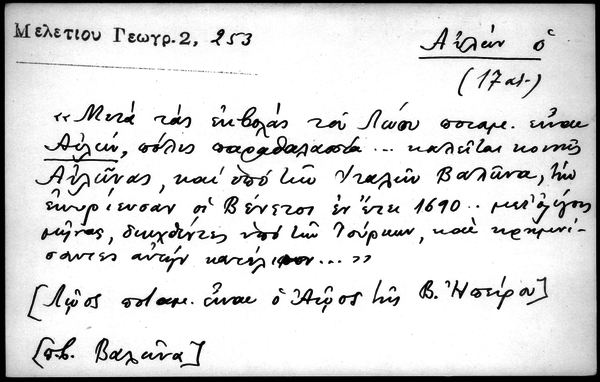 Μελετίου Γεωγρ. 2, 253
Αὐλών ὁ
(17 αι.)
«Μετά τάς ἐκβολάς τοῦ Λώου ποταμ. εἶναι
Αὐλών, πόλις παραθαλασσία ... καλεῖται κοινῶς
Αὐλῶνας, καί ὑπό τῶν Ἰταλῶν Βαλῶνα, τήν
ἐκυρίευσαν οἱ Βένετοι ἐν ἔτει 1690 .. μετ' ὀλίγους
μῆνας, διωχθέντες ὑπό τῶν Τούρκων, καί κρημνί-
σαντες αὐτήν κατέλιπον ... »
[Λῶος ποταμ. εἶναι ὁ Ἀῶος τῆς Β. Ἠπείρου]
[πβ. Βαλῶνα]